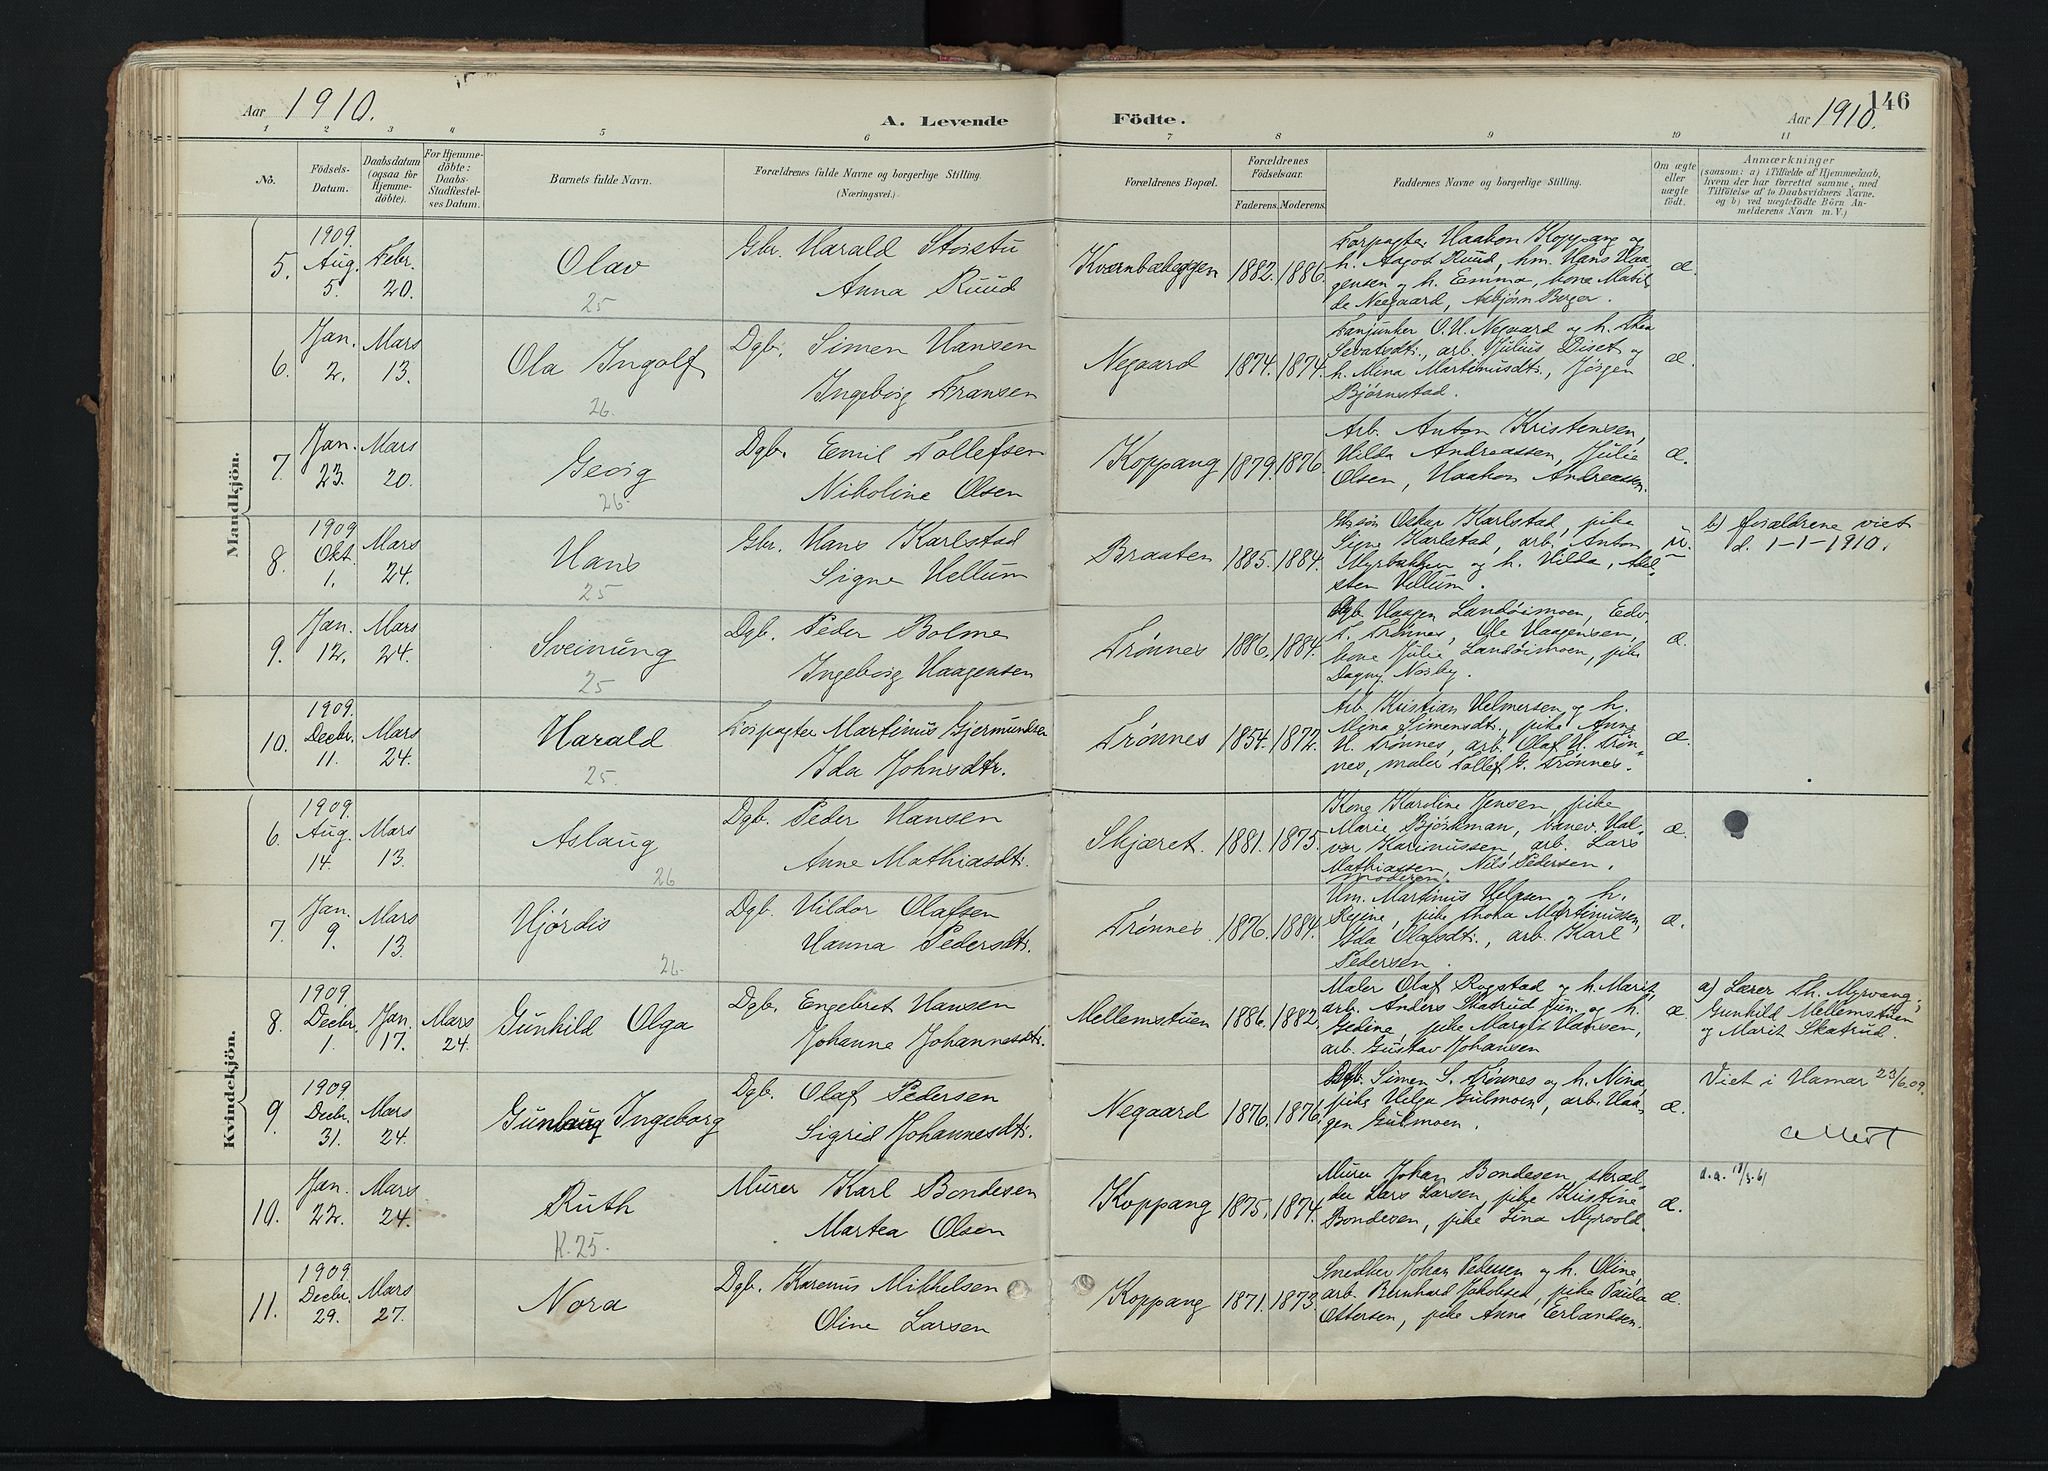 Aar 1910.
A. Levende
1 2 3 4 5 6
No.
Födsels-
Datum.
Daabsdatum
(ogsaa for
Hjemme-
döbte).
For Hjemme-
döbte:
Daabs-
Stadfæstel-
ses Datum.
Barnets fulde Navn.
Forældrenes fulde Navne og borgerlige Stilling.
(Næringsvei.)
Födte.
Aar 1910.
146
7 8 9 10 11
Forældrenes Bopæl.
Forældrenes
Födselsaar.
Faderens. Moderens.
Faddernes Navne og borgerlige Stilling.
Om ægte
eller
uægte
födt.
Anmærkninger
(saasom: a) i Tilfælde af Hjemmedaab,
hvem der har forrettet samme, med
Tilföielse af to Daabsvidners Navne.
og b) ved uægtefödte Börn An-
melderens Navn m. V.)
Mandkjön.
5. 1909 Aug. 5. Febr. 20. Olav 25
Gbr. Harald Storstu
Anna Ruud
Kværnbækeggen 1882. 1886.
Forpagter Haakon Koppang og
h. Aagot Ruud, hm. Hans Haa-
gensen og h. Emma, kone Matil-
de Neegaard, Asbjørn Berger.
æ.
6. Jan. 2. Mars 13. Ola Ingolf 26.
Dgb. Simen Hansen
Ingeborg Fransen
Negaard 1874. 1874.
Fanjunker O. H. Negaard og h. Thea
Sevatsdt., arb. Julius Diset og
h. Mina Martinusdt., Jørgen
Bjørnstad.
æ.
7. Jan. 23. Mars 20. Georg 26.
Dgb. Emil Tollefsen
Nikoline Olsen
Koppang 1879. 1876.
Arb. Anton Kristensen,
Hilda Andreassen, Julie
Olsen, Haakon Andreassen.
æ.
8. 1909 Okt. 1. Mars 24. Hans 25
Gbr. Hans Karlstad
Signe Hellum
Braaten 1885. 1884.
Oskar Karlstad, pike
Signe Karlstad, arb. Anton
Myrbakken og h. Hilda,
sten Hellum.
u.
b) forældrene viet
d. 1-1-1910.
9. Jan. 12. Mars 24. Sveinung 25
Dgb. Peder Bolme
Ingeborg Haagensen
Trønnes 1886. 1884.
Dgb. Haagen Landøimoen, Edv.
T. Trønnes, Ole Haagensen,
kone Julie Landøimoen, pike
Dagny Nosby.
æ.
10. 1909. Decbr. 11. Mars 24. Harald 25
Forpagter Martinus Gjermundsen
Ida Johnsdtr.
Trønnes 1854. 1872.
Arb. Kristian Helmersen og h.
Mina Simensdt., pike Anne
H. Trønnes, arb. Olaf H. Trøn-
nes, maler Tollef G. Trønnes.
æ.
Kvindekjön.
6. 1909. Aug. 14. Mars 13. Aslaug 26
Dgb. Peder Hansen
Anne Mathiasdt.
Skjæret. 1881. 1875.
Kone Karoline Jensen, pike
Marie Bjørkman, banev. Hal-
vor Karinussen, arb. Lars
Mathiassen, Nils Pedersen.
moderen.
æ.
7. Jan. 9. Mars 13. Hjørdis 26.
Dgb. Hildor Olafsen
Hanna Pedersdt.
Trønnes 1876. 1884.
Hm. Martinus Helgesen og h.
Regine, pike Thora Martinussen,
Ida Olafsdt., arb. Karl
Pedersen.
æ.
8. 1909. Decbr. 1. Jan. 17. Mars 24. Gunhild Olga
Dgb. Engebret Hansen
Johanne Johannesdt.
Mellemstuen 1886. 1882.
Maler Olaf Rogstad og h. Marit,
arb. Anders Skatrud jun. og h.
Gedine, pike Margit Hansen,
arb. Gustav Johansen
æ
a) Lærer Th. Myrvang;
Gunhild Mellemstuen
og Marit Skatrud.
9. 1909 Decbr. 31. Mars 24. Gunlaug Ingeborg
Dgb. Olaf Pedersen
Sigrid Johannesdt.
Negaard 1876. 1876.
Dgb. Simen S. Trønnes og h. Nina,
pike Helga Gulmoen, arb. Haa-
gen Gulmoen.
æ.
Viet i Hamar 23/6.09.
10. Jan. 22. Mars 24. Ruth K.25.
Murer Karl Bondesen
Martea Olsen
Koppang 1875. 1874.
Murer Johan Bondesen, skræd-
der Lars Larsen, pike Kristine
Bondesen, pike Lina Myrvold.
æ.
11. 1909. Decbr. 29. Mars 27. Nora
Dgb. Karenus Mikkelsen
Oline Larsen
Koppang 1871. 1873.
Snedker Johan Pedersen og h. Oline,
arb. Bernhard Jakobsen, pike Paula
Ottersen, pike Anna Erlandsen.
æ.